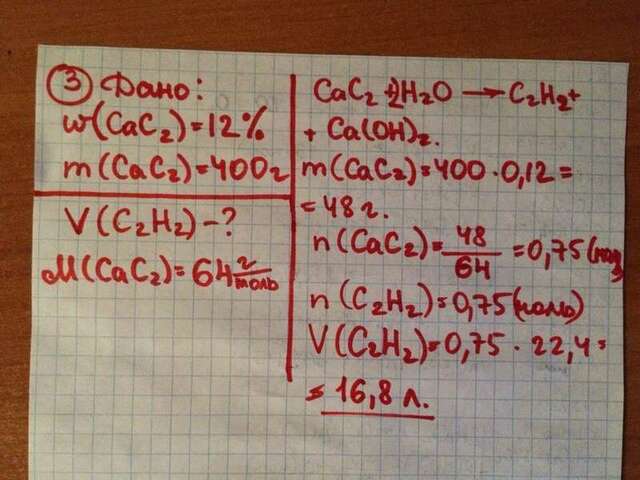 ③ Дано:
w(CaC₂)=12%
m(CaC₂)=400г
V(C₂H₂)-?
M(CaC₂)=64 г/моль
CaC₂+2H₂O → C₂H₂+
+ Ca(OH)₂.
m(CaC₂)=400·0,12=
=48г.
n(CaC₂)=48/64=0,75(
n(C₂H₂)=0,75(моль)
V(C₂H₂)=0,75·22,4=
=16,8л.